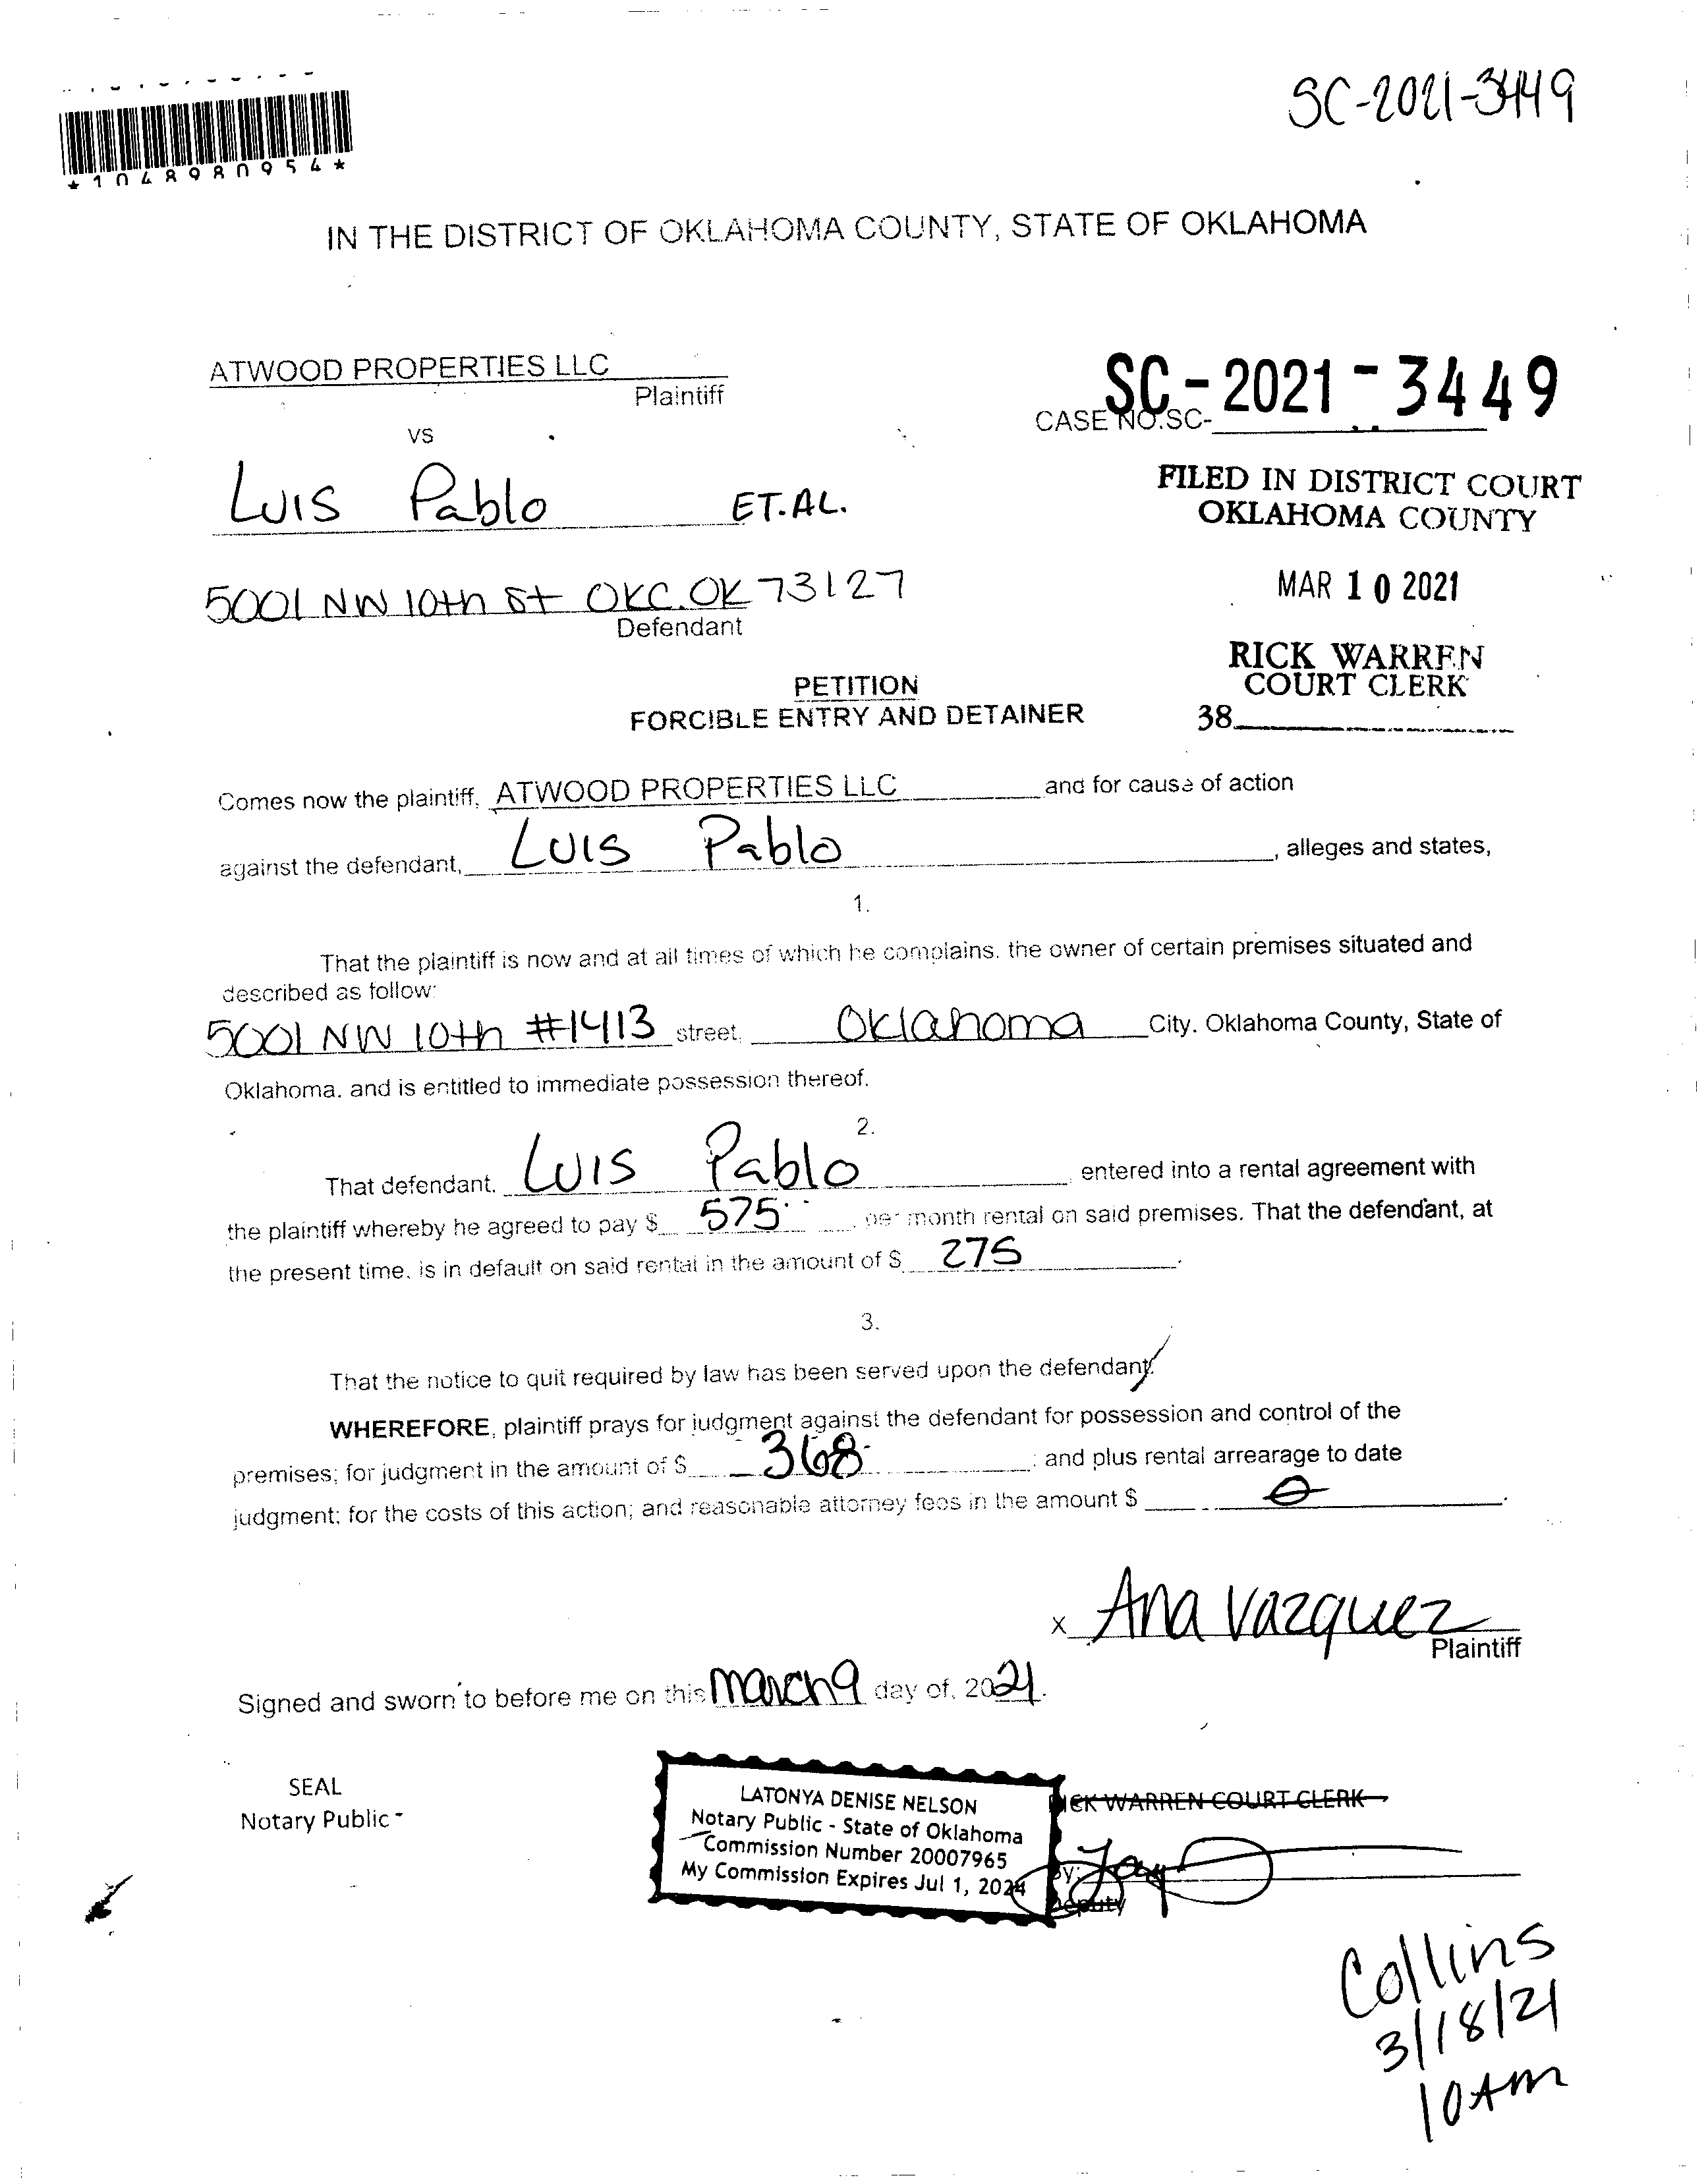 SC-2021-3449
*1048980954*
IN THE DISTRICT OF OKLAHOMA COUNTY, STATE OF OKLAHOMA
ATWOOD PROPERTIES LLC
Plaintiff
SC-2021-3449
CASE NO.SC-
VS
Luis Pablo ET.AL.
FILED IN DISTRICT COURT
OKLAHOMA COUNTY
5001 NW 10th St OKC. OK 73127
Defendant
MAR 10 2021
RICK WARREN
COURT CLERK
38
PETITION
FORCIBLE ENTRY AND DETAINER
Comes now the plaintiff, ATWOOD PROPERTIES LLC and for cause of action
against the defendant, Luis Pablo, alleges and states,
1.
That the plaintiff is now and at all times of which he complains, the owner of certain premises situated and
described as follow:
5001 NW 10th #1413 street, Oklahoma City, Oklahoma County, State of
Oklahoma, and is entitled to immediate possession thereof.
2.
That defendant, Luis Pablo entered into a rental agreement with
the plaintiff whereby he agreed to pay $ 575 per month rental on said premises. That the defendant, at
the present time, is in default on said rental in the amount of $ 275.
3.
That the notice to quit required by law has been served upon the defendant.
WHEREFORE, plaintiff prays for judgment against the defendant for possession and control of the
premises; for judgment in the amount of $ 368; and plus rental arrearage to date
judgment; for the costs of this action; and reasonable attorney fees in the amount $ 0.
x Ana Vazquez
Plaintiff
Signed and sworn to before me on this March 9 day of, 2021.
SEAL
Notary Public -
LATONYA DENISE NELSON
Notary Public - State of Oklahoma
Commission Number 20007965
My Commission Expires Jul 1, 2024
ICK WARREN COURT CLERK
By:
Deputy
Collins
3/18/21
10Am